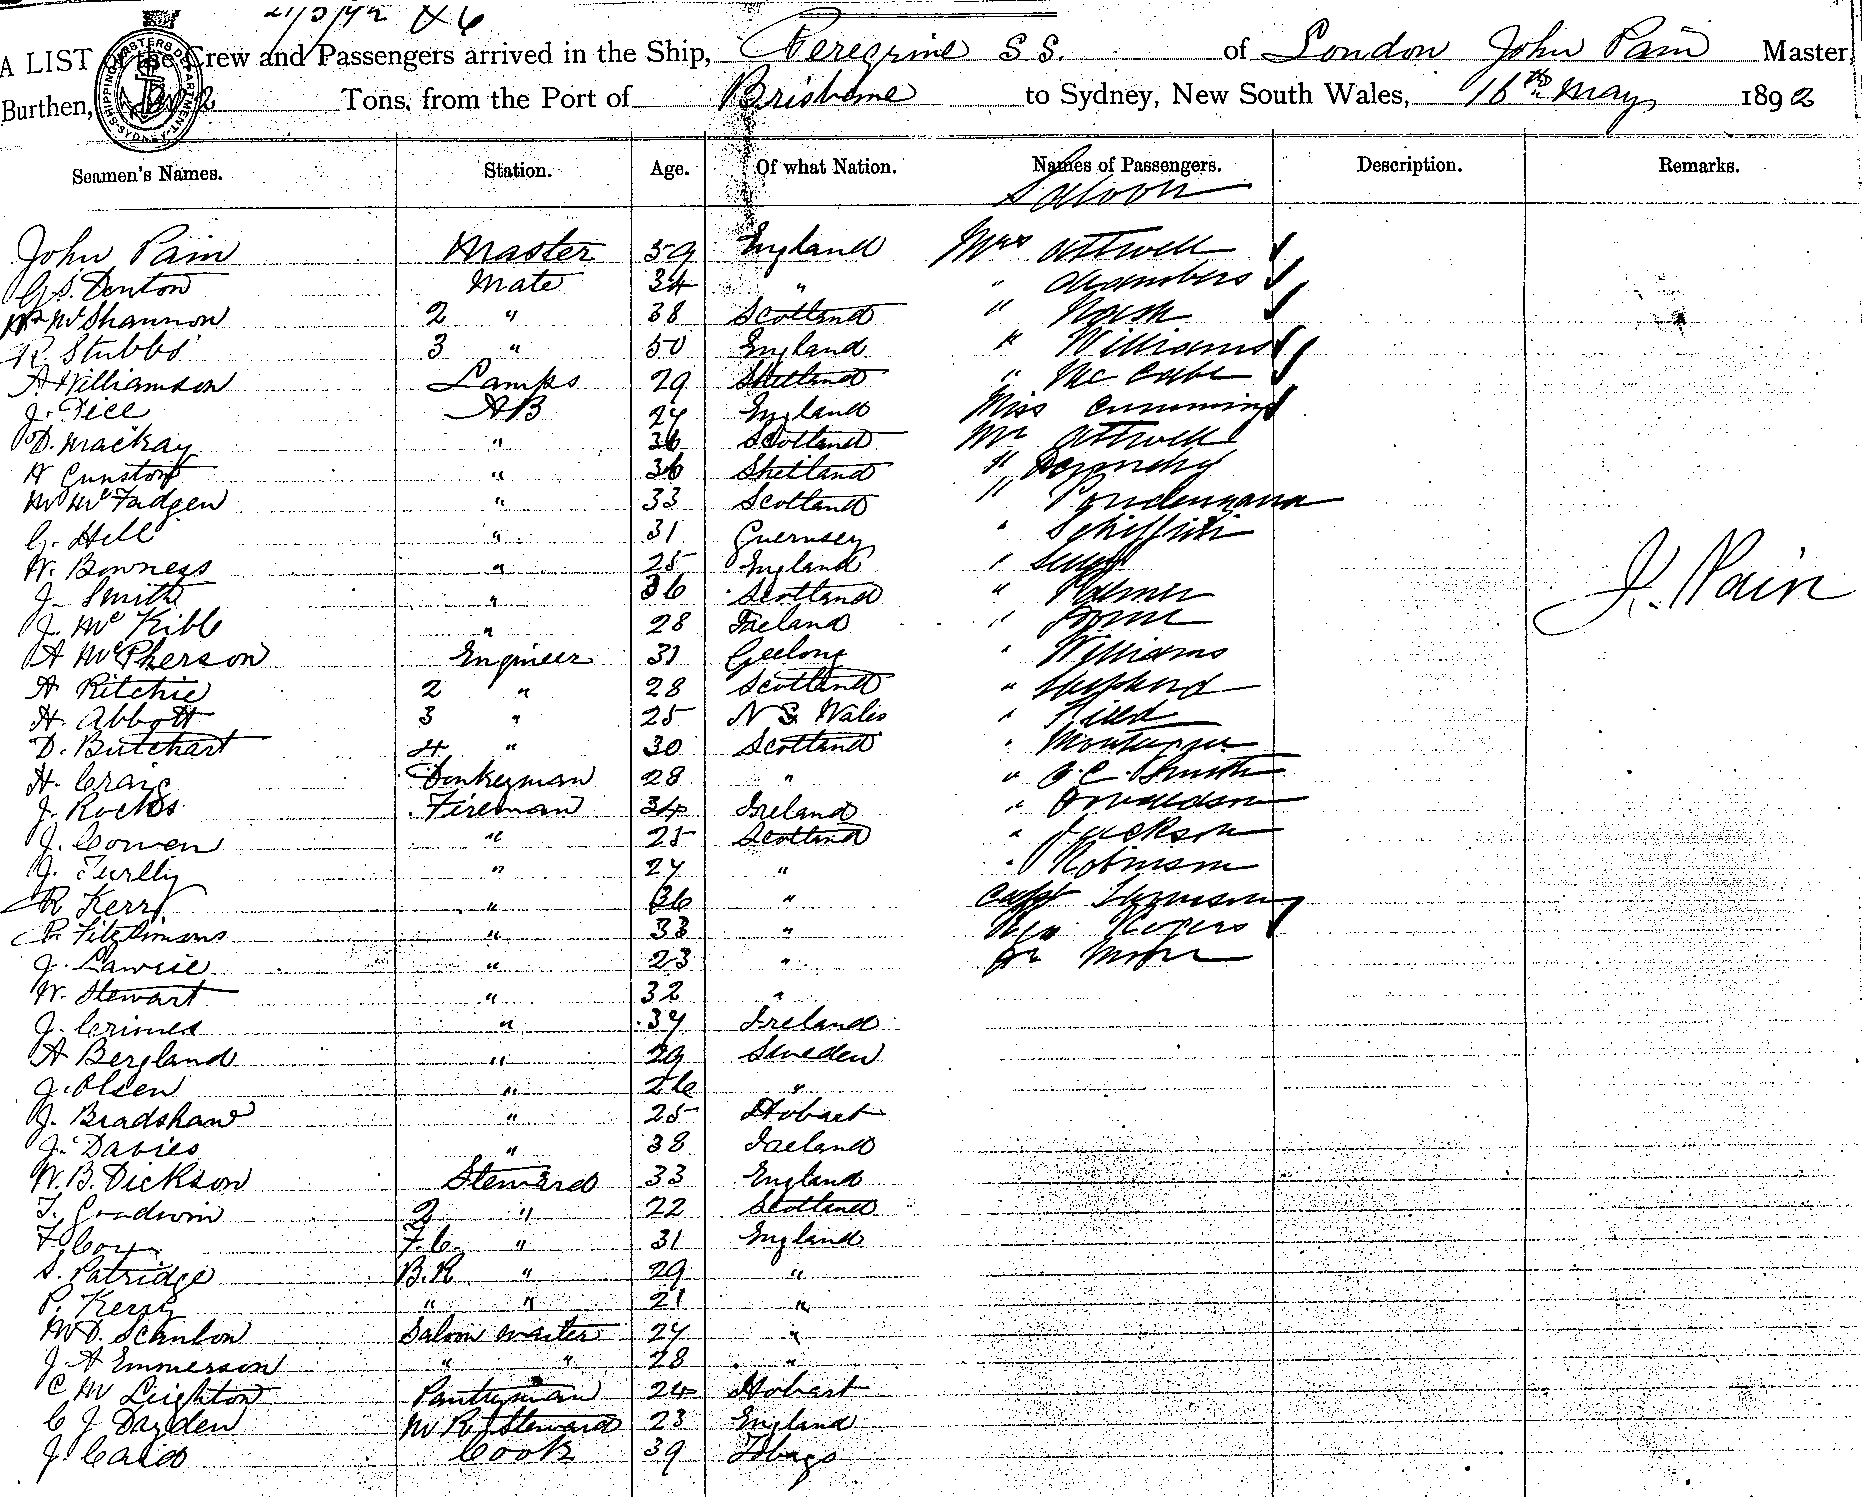 21/5/92 &6
A LIST of the Crew and Passengers arrived in the Ship, Peregrine S S. of London John Pain Master,
Burthen, Tons, from the Port of Brisbane to Sydney, New South Wales, 16th May 1892
SHIPPING MASTERS DEPARTMENT SYDNEY
Seamen's Names. Station. Age. Of what Nation. Names of Passengers. Description. Remarks.
Saloon
John Pain Master 59 England Mrs Attwell
G. S. Denton Mate 34 " " Chambers
Wm McShannon 2 " 38 Scotland " Nash
R. Stubbs 3 " 50 England " Williams
A Williamson Lamps 29 Shetland " McCabe
J. Fice AB 24 England Miss Cumming
D. Mackay " 36 Scotland Mr Attwell
A Cunston " 36 Shetland "
W McFadgen " 33 Scotland "
G. Hill " 31 Guernsey "
W. Bowness " 25 England "
J. Smith " 36 Scotland " Palmer
J. McKibb " 28 Ireland "
A McPherson Engineer 31 Geelong " Williams
A Ritchie 2 " 28 Scotland " Shepherd
H. Abbott 3 " 25 N S Wales "
D. Butchart 4 " 30 Scotland " Montague
H. Craig Donkeyman 28 " " J. C. Smith
J. Rocks Fireman 34 Ireland " Donaldson
J. Cowen " 25 Scotland " Jackson
J. Turlly " 24 " " Robinson
R Kerr " 36 " Capt
P. Fitzsimons " 33 " Rogers
J. Lawrie " 23 " Dr Moore
W. Stewart " 32 "
J. Grimes " 34 Ireland
A Bergland " 29 Sweden
J. Olsen " 26 "
J. Bradshaw " 25 Hobart
J. Davies " 38 Ireland
J. Pain
W. B. Dickson Steward 33 England
T. Goodwin 2 " 22 Scotland
F. Cox F. C. " 31 England
S. Patridge B. R " 29 "
P. Kerry " " 21 "
W D. Scanlon Saloon Waiter 24 "
J A Emmerson " " 28 "
C W Leighton Pantryman 24 Hobart
C J Dayden M R Steward 23 England
J. Caird Cook 39 Tobago